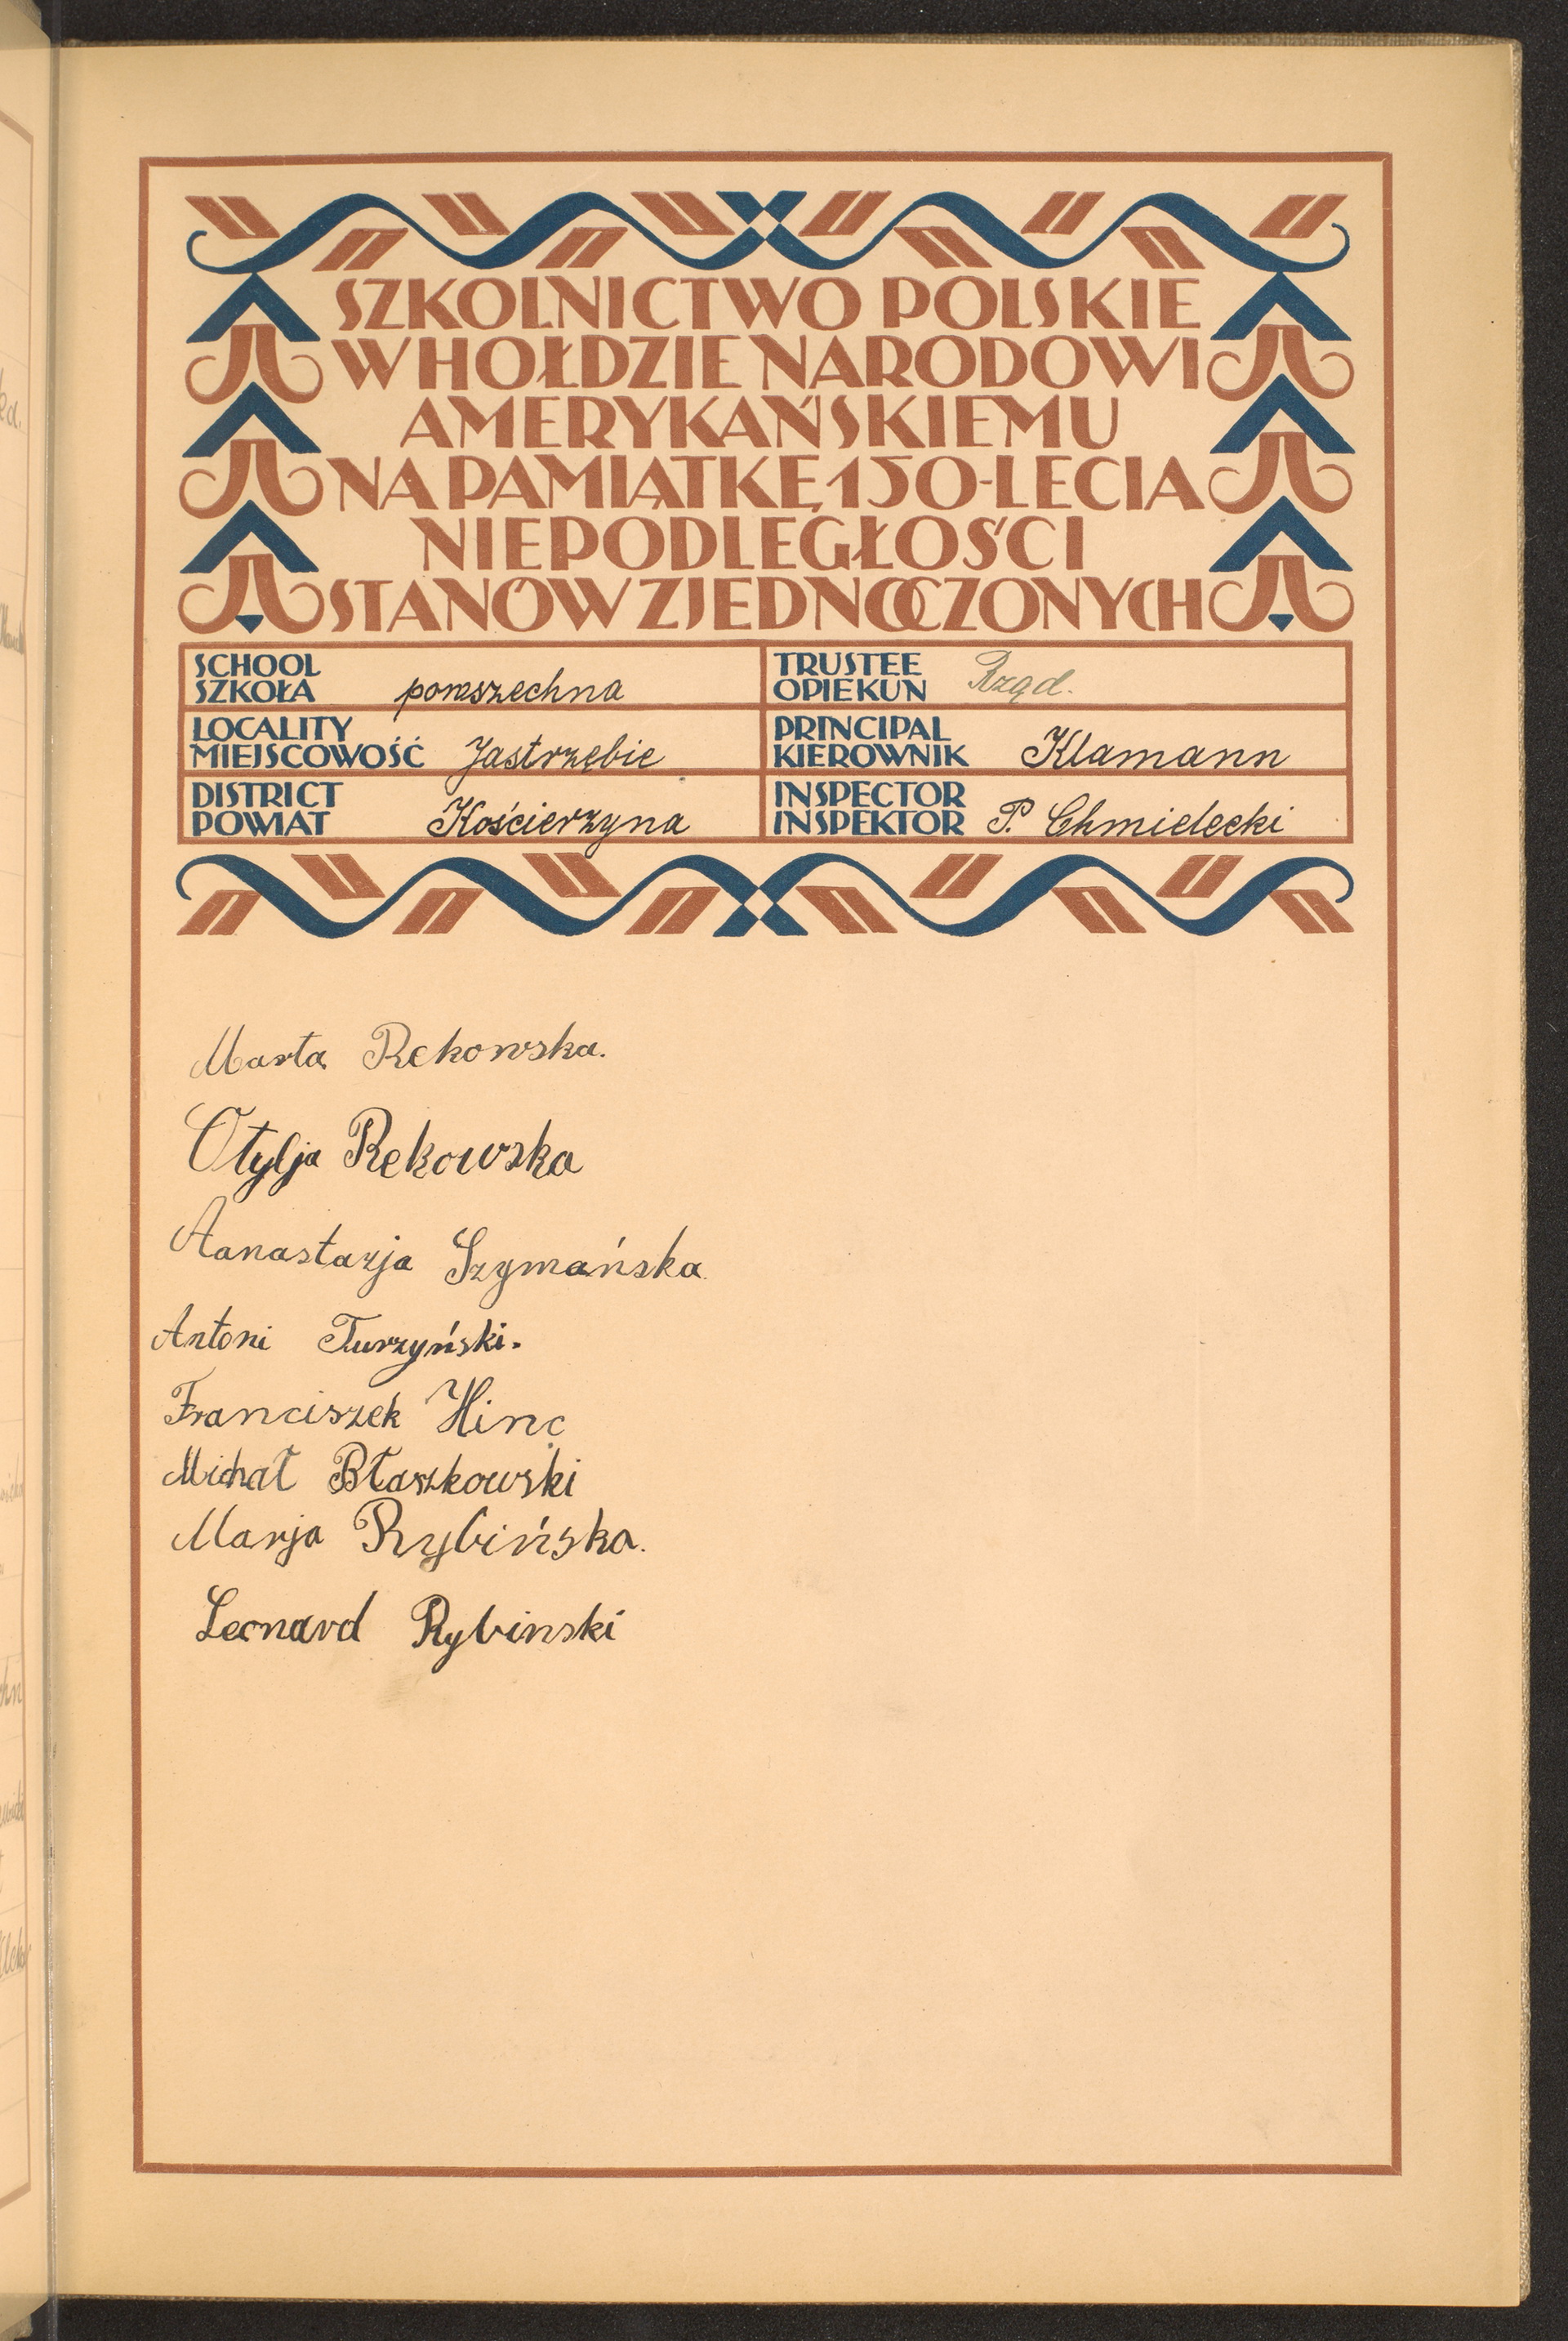 SZKOLNICTWO POLSKIE
W HOŁDZIE NARODOWI
AMERYKAŃSKIEMU
NA PAMIĄTKĘ 150-LECIA
NIEPODLEGŁOŚCI
STANÓW ZJEDNOCZONYCH
SCHOOL
SZKOŁA powszechna
TRUSTEE
OPIEKUN Rząd.
LOCALITY
MIEJSCOWOŚĆ Jastrzębie
PRINCIPAL
KIEROWNIK Klamann
DISTRICT
POWIAT Kościerzyna
INSPECTOR
INSPEKTOR P. Chmielecki
Marta Rekowska.
Otylja Rekowska
Aanastazja Szymańska.
Antoni Turzyński.
Franciszek Hinc
Michał Błaszkowski
Marja Rybińska.
Leonard Rybinski